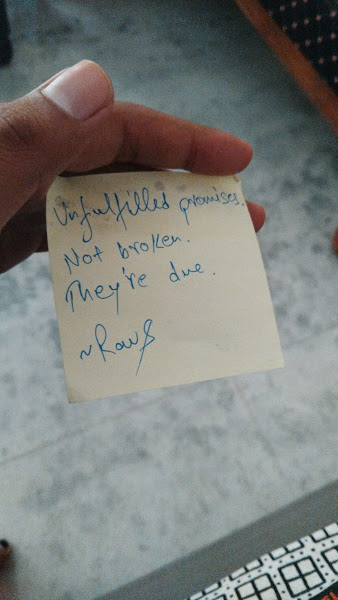 Unfulfilled promises.
Not broken.
They're due.